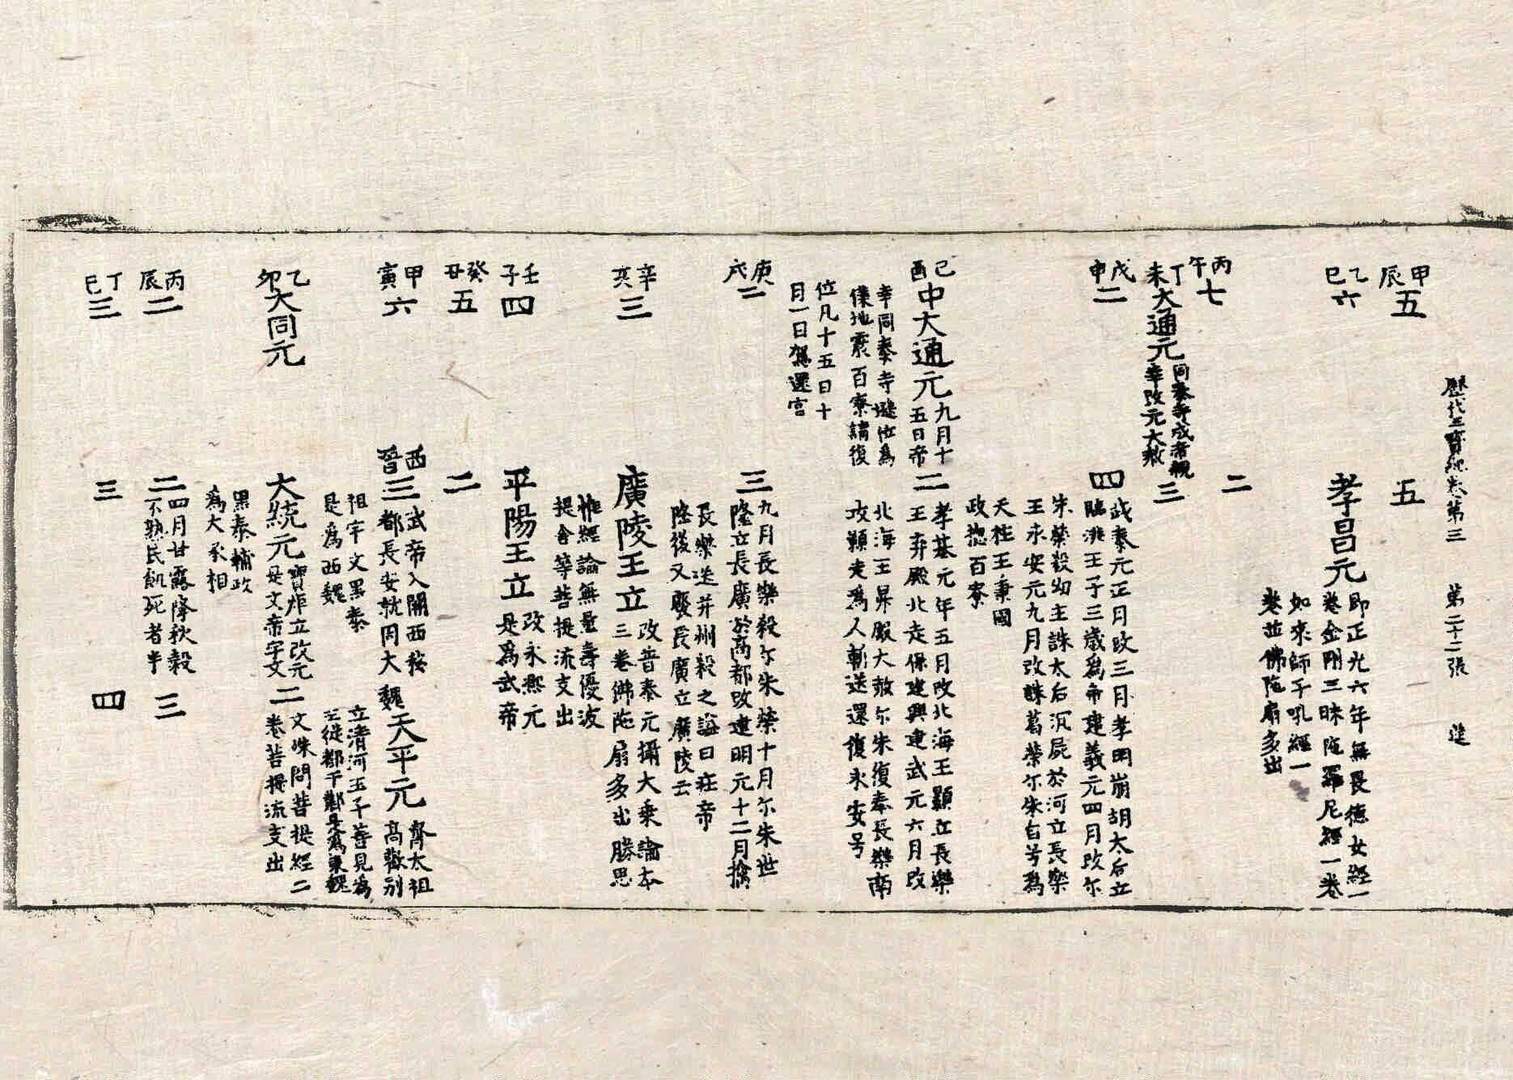 歷代三寶紀卷第三　第二十二張　造
甲辰
五
五
乙巳
六
孝昌元
即正光六年無畏德女經一
卷金剛三昧陁羅尼經一卷
如來師子吼經一
卷並佛陁扇多出
丙午
七
二
丁未
大通元
同泰寺成帝親
幸改元大赦
三
戊申
二
四
武泰元正月改三月孝明崩胡太后立
臨洮王子三歲為帝建義元四月改尒
朱榮殺幼主誅太后沉屍於河立長樂
王永安元九月改誅葛榮尒朱自号為
天柱王秉國
政揔百寮
己酉
中大通元
九月十
五日帝
幸同泰寺捨位為
僕地震百寮請復
位凡十五日十
月一日駕還宮
二
孝基元年五月改北海王顥立長樂
王弃殿北走保建興建武元六月改
北海王昇殿大赦尒朱復奉長樂南
攻顥走為人斬送還復永安号
庚戌
二
三
九月長樂殺尒朱榮十月尒朱世
隆立長廣於高都改建明元十二月擒
長樂送并州殺之謚曰莊帝
隆後又廢長廣立廣陵云
辛亥
三
廣陵王立
改普泰元攝大乘論本
三卷佛陁扇多出勝思
惟經論無量壽優波
提舍等菩提流支出
壬子
四
平陽王立
改永熙元
是為武帝
癸丑
五
二
甲寅
六
西晉
三
武帝入關西移
都長安就周大
祖宇文黑泰
是為西魏
魏
天平元
齊太祖
高歡別
立清河王子善見為
主徙都于鄴是為東魏
乙卯
大同元
大統元
寶炬立改元
是文帝宇文
黑泰輔政
為大丞相
二
文殊問菩提經二
卷菩提流支出
丙辰
二
二
四月甘露降秋穀
不熟民飢死者半
三
丁巳
三
三
四